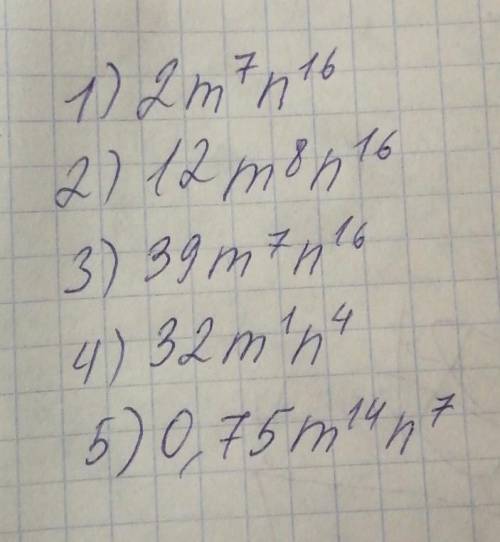 1) 2m⁷n¹⁶
2) 12m⁸n¹⁶
3) 39m⁷n¹⁶
4) 32m¹n⁴
5) 0,75m¹⁴n⁷